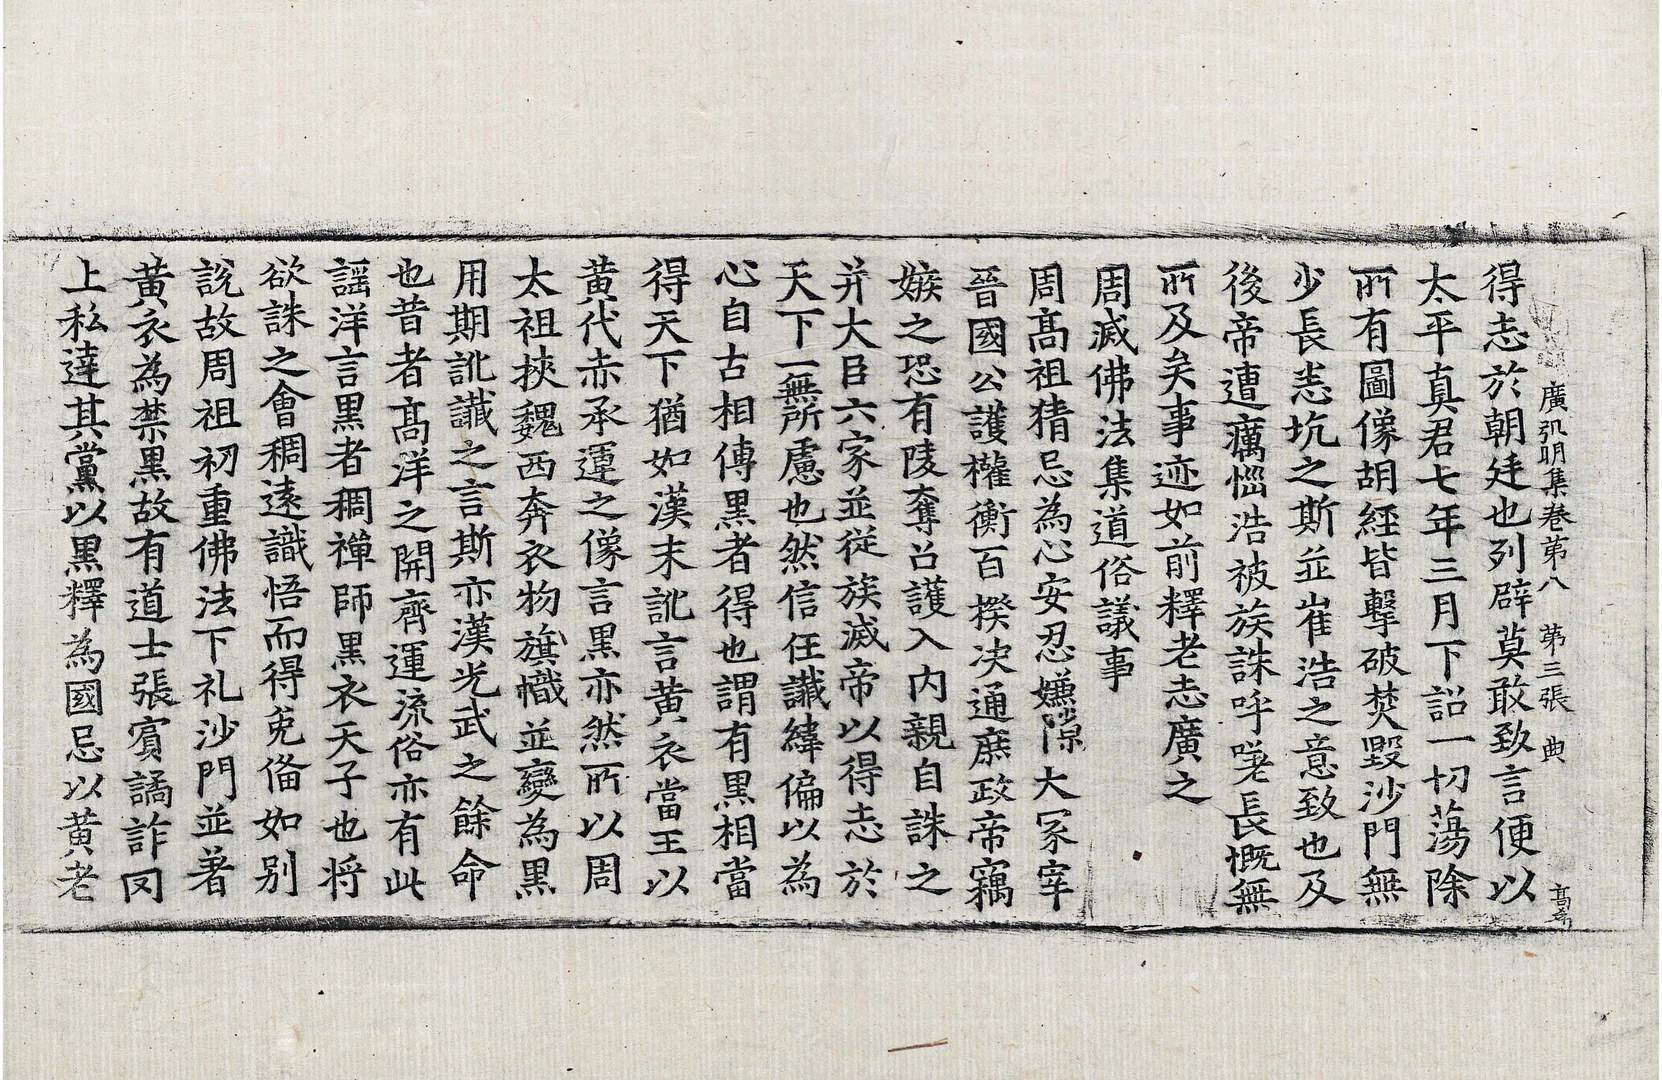 廣弘明集卷第八　第三張　典
得志於朝廷也列辟莫敢致言便以
太平真君七年三月下詔一切蕩除
所有圖像胡經皆擊破焚毀沙門無
少長悉坑之斯並崔浩之意致也及
後帝遭癘惱浩被族誅呼嗟長慨無
所及矣事迹如前釋老志廣之
周滅佛法集道俗議事
周髙祖猜忌為心安忍嫌隙大冢宰
晉國公護權衡百揆決通庶政帝竊
嫉之恐有陵奪召護入內親自誅之
并大臣六家並從族滅帝以得志於
天下一無所慮也然信任讖緯偏以為
心自古相傳黑者得也謂有黑相當
得天下猶如漢末訛言黃衣當王以
黃代赤承運之像言黑亦然所以周
太祖挾魏西奔衣物旗幟並變為黑
用期訛讖之言斯亦漢光武之餘命
也昔者髙洋之開齊運流俗亦有此
謡洋言黑者稠禪師黑衣天子也将
欲誅之會稠遠識悟而得免俻如别
說故周祖初重佛法下礼沙門並著
黃衣為禁黑故有道士張賓譎詐罔
上私達其黨以黑釋為國忌以黃老